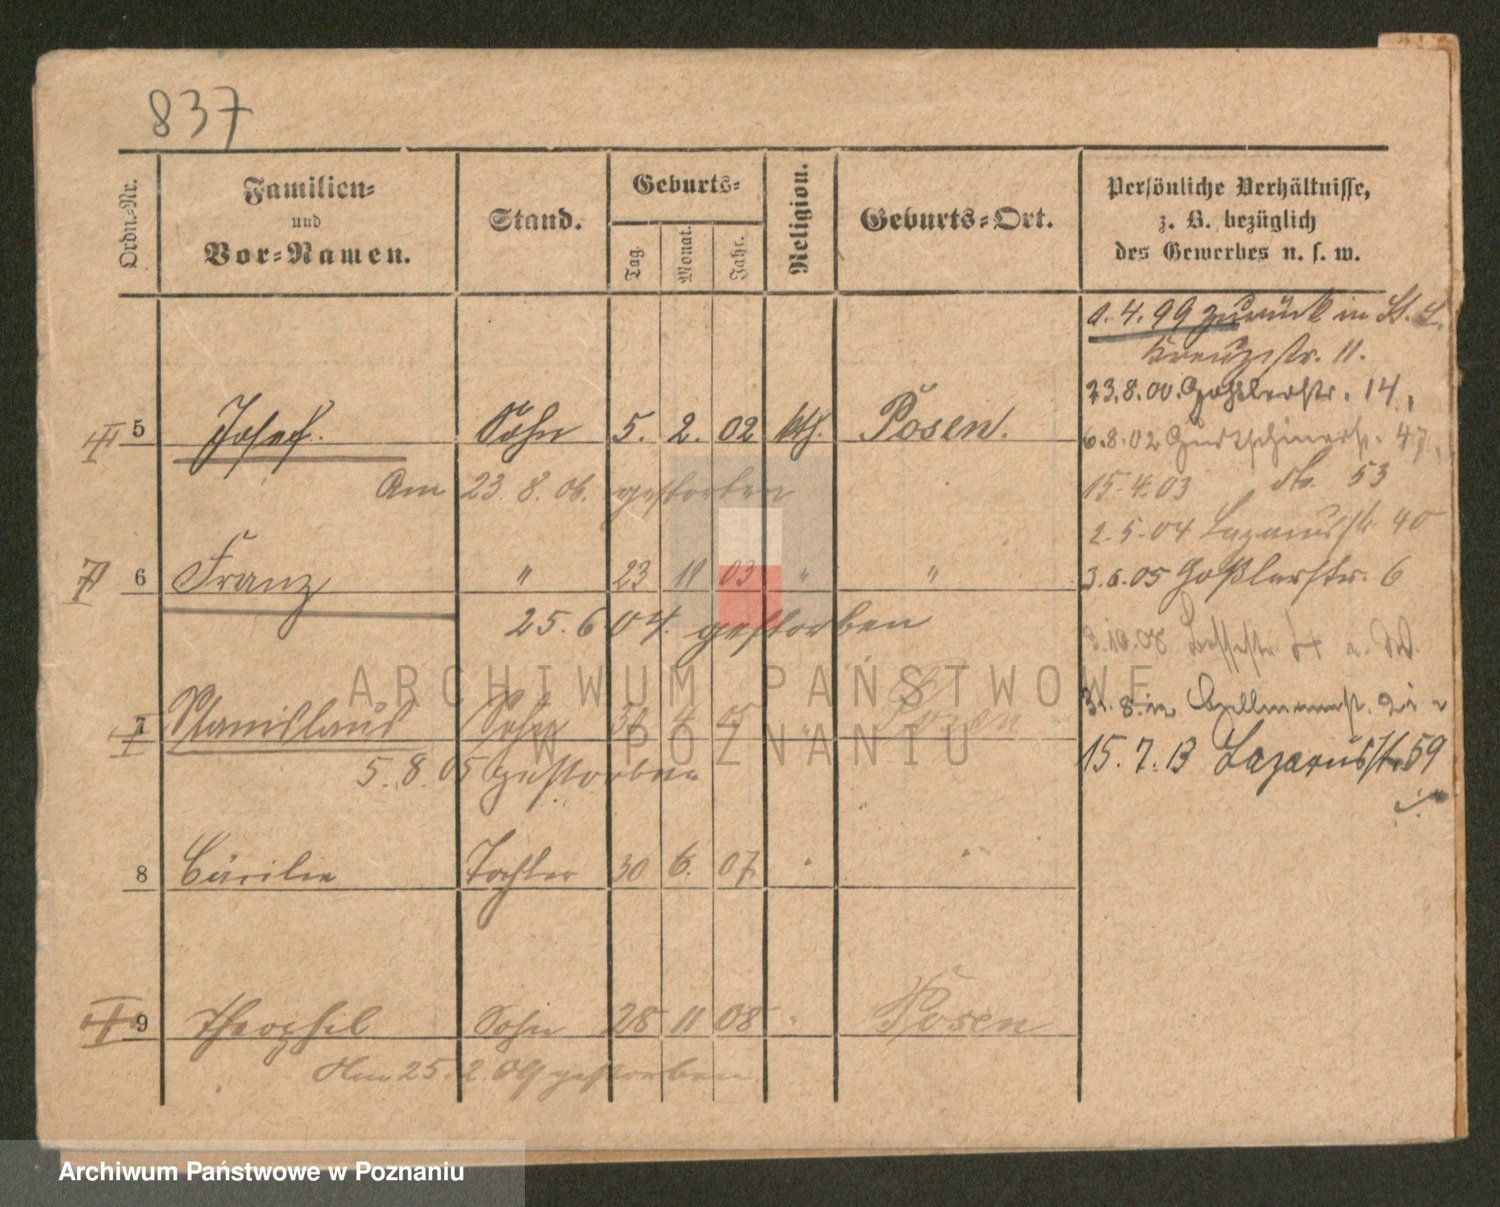 837
Ordn.-Nr.
Familien-
und
Vor-Namen.
Stand.
Geburts-
Tag.
Monat.
Jahr.
Religion.
Geburts-Ort.
Persönliche Verhältnisse,
z. B. bezüglich
des Gewerbes u. s. w.
1.4.99 zurück in St. L.
Kreuzstr. 11.
23.8.00. Goßlerstr. 14,
5 Josef. Sohn 5. 2. 02 kth. Posen.
6.8.02 Gurtschinerstr. 47,
Am 23.8.06. gestorben
15.4.03 do. 53
2.5.04 Lazarusstr 40
6 Franz " 23 11 03 " "
3.6.05 Goßlerstr. 6
25.6.04. gestorben
3.10.08
7 Stanislaus Sohn 4 05 " Posen
31.8.12
5.8.05 gestorben
15.7.13 Lazarusstr. 59
8 Cäcilie Tochter 30 6. 07 " "
9 Theophil Sohn 28 11 08 " Posen
Am 25.2.09 gestorben
ARCHIWUM PAŃSTWOWE
W POZNANIU
Archiwum Państwowe w Poznaniu